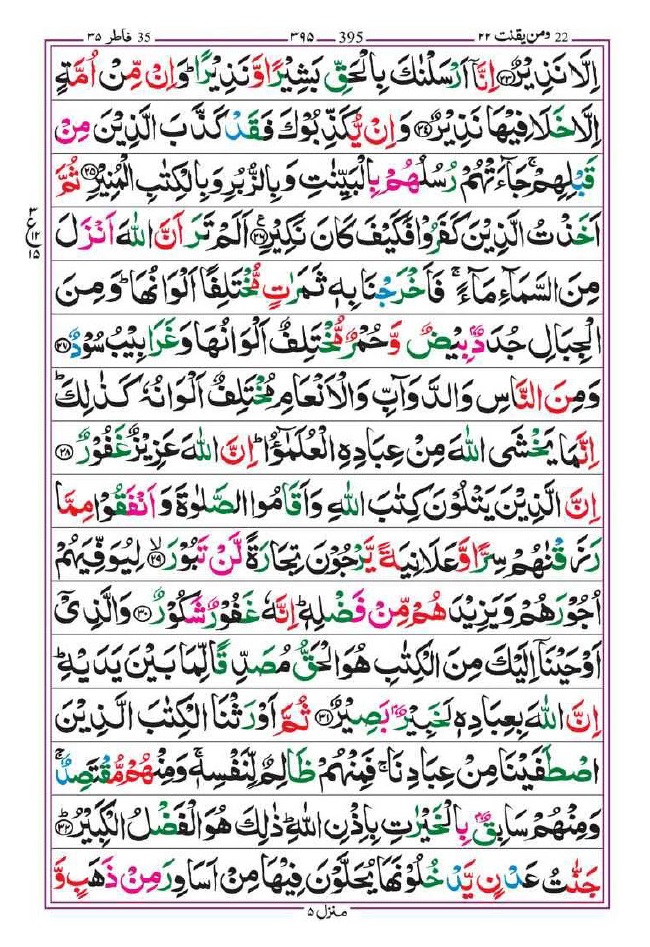 22 ومن يقنت ٢٢
395 ٣٩٥
35 فاطر ٣٥
اِلَّا نَذِيْرٌ ﴿۲۳﴾ اِنَّاۤ اَرْسَلْنٰكَ بِالْحَقِّ بَشِيْرًا وَّ نَذِيْرًا ؕ وَ اِنْ مِّنْ اُمَّةٍ
اِلَّا خَلَا فِيْهَا نَذِيْرٌ ﴿۲۴﴾ وَ اِنْ يُّكَذِّبُوْكَ فَقَدْ كَذَّبَ الَّذِيْنَ مِنْ
قَبْلِهِمْ ۚ جَآءَتْهُمْ رُسُلُهُمْ بِالْبَيِّنٰتِ وَ بِالزُّبُرِ وَ بِالْكِتٰبِ الْمُنِيْرِ ﴿۲۵﴾ ثُمَّ
اَخَذْتُ الَّذِيْنَ كَفَرُوْا فَكَيْفَ كَانَ نَكِيْرِ ﴿۲۶﴾ اَلَمْ تَرَ اَنَّ اللّٰهَ اَنْزَلَ
٣ ع ١٢ ١٥
مِنَ السَّمَآءِ مَآءً ۚ فَاَخْرَجْنَا بِهٖ ثَمَرٰتٍ مُّخْتَلِفًا اَلْوَانُهَا ؕ وَ مِنَ
الْجِبَالِ جُدَدٌۢ بِيْضٌ وَّ حُمْرٌ مُّخْتَلِفٌ اَلْوَانُهَا وَ غَرَابِيْبُ سُوْدٌ ﴿۲۷﴾
وَ مِنَ النَّاسِ وَ الدَّوَآبِّ وَ الْاَنْعَامِ مُخْتَلِفٌ اَلْوَانُهٗ كَذٰلِكَ ؕ
اِنَّمَا يَخْشَى اللّٰهَ مِنْ عِبَادِهِ الْعُلَمٰٓؤُا ؕ اِنَّ اللّٰهَ عَزِيْزٌ غَفُوْرٌ ﴿۲۸﴾
اِنَّ الَّذِيْنَ يَتْلُوْنَ كِتٰبَ اللّٰهِ وَ اَقَامُوا الصَّلٰوةَ وَ اَنْفَقُوْا مِمَّا
رَزَقْنٰهُمْ سِرًّا وَّ عَلَانِيَةً يَّرْجُوْنَ تِجَارَةً لَّنْ تَبُوْرَ ﴿ۙ۲۹﴾ لِيُوَفِّيَهُمْ
اُجُوْرَهُمْ وَ يَزِيْدَهُمْ مِّنْ فَضْلِهٖ ؕ اِنَّهٗ غَفُوْرٌ شَكُوْرٌ ﴿۳۰﴾ وَ الَّذِيْۤ
اَوْحَيْنَاۤ اِلَيْكَ مِنَ الْكِتٰبِ هُوَ الْحَقُّ مُصَدِّقًا لِّمَا بَيْنَ يَدَيْهِ ؕ
اِنَّ اللّٰهَ بِعِبَادِهٖ لَخَبِيْرٌۢ بَصِيْرٌ ﴿۳۱﴾ ثُمَّ اَوْرَثْنَا الْكِتٰبَ الَّذِيْنَ
اصْطَفَيْنَا مِنْ عِبَادِنَا ۚ فَمِنْهُمْ ظَالِمٌ لِّنَفْسِهٖ ۚ وَ مِنْهُمْ مُّقْتَصِدٌ ۚ
وَ مِنْهُمْ سَابِقٌۢ بِالْخَيْرٰتِ بِاِذْنِ اللّٰهِ ؕ ذٰلِكَ هُوَ الْفَضْلُ الْكَبِيْرُ ﴿ؕ۳۲﴾
جَنّٰتُ عَدْنٍ يَّدْخُلُوْنَهَا يُحَلَّوْنَ فِيْهَا مِنْ اَسَاوِرَ مِنْ ذَهَبٍ وَّ
منزل ۵